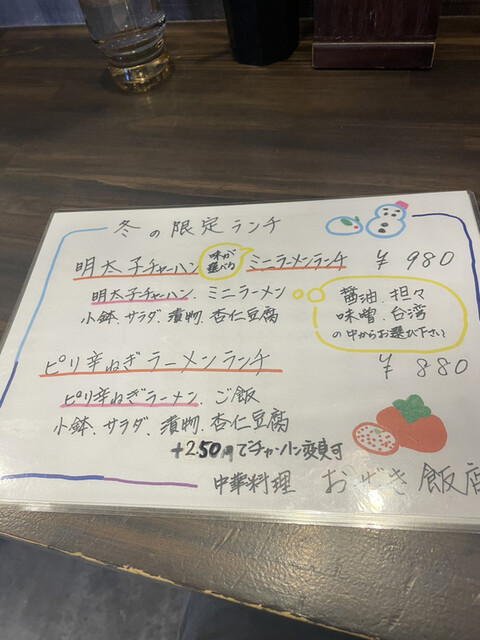 冬の限定ランチ
明太子チャーハン 味が選べる ミニラーメンランチ ¥980
明太子チャーハン、ミニラーメン
小鉢、サラダ、漬物、杏仁豆腐
醤油、担々
味噌、台湾
の中からお選び下さい
ピリ辛ねぎラーメンランチ ¥880
ピリ辛ねぎラーメン、ご飯
小鉢、サラダ、漬物、杏仁豆腐
+250円でチャーハン変更可
中華料理 おざき飯店